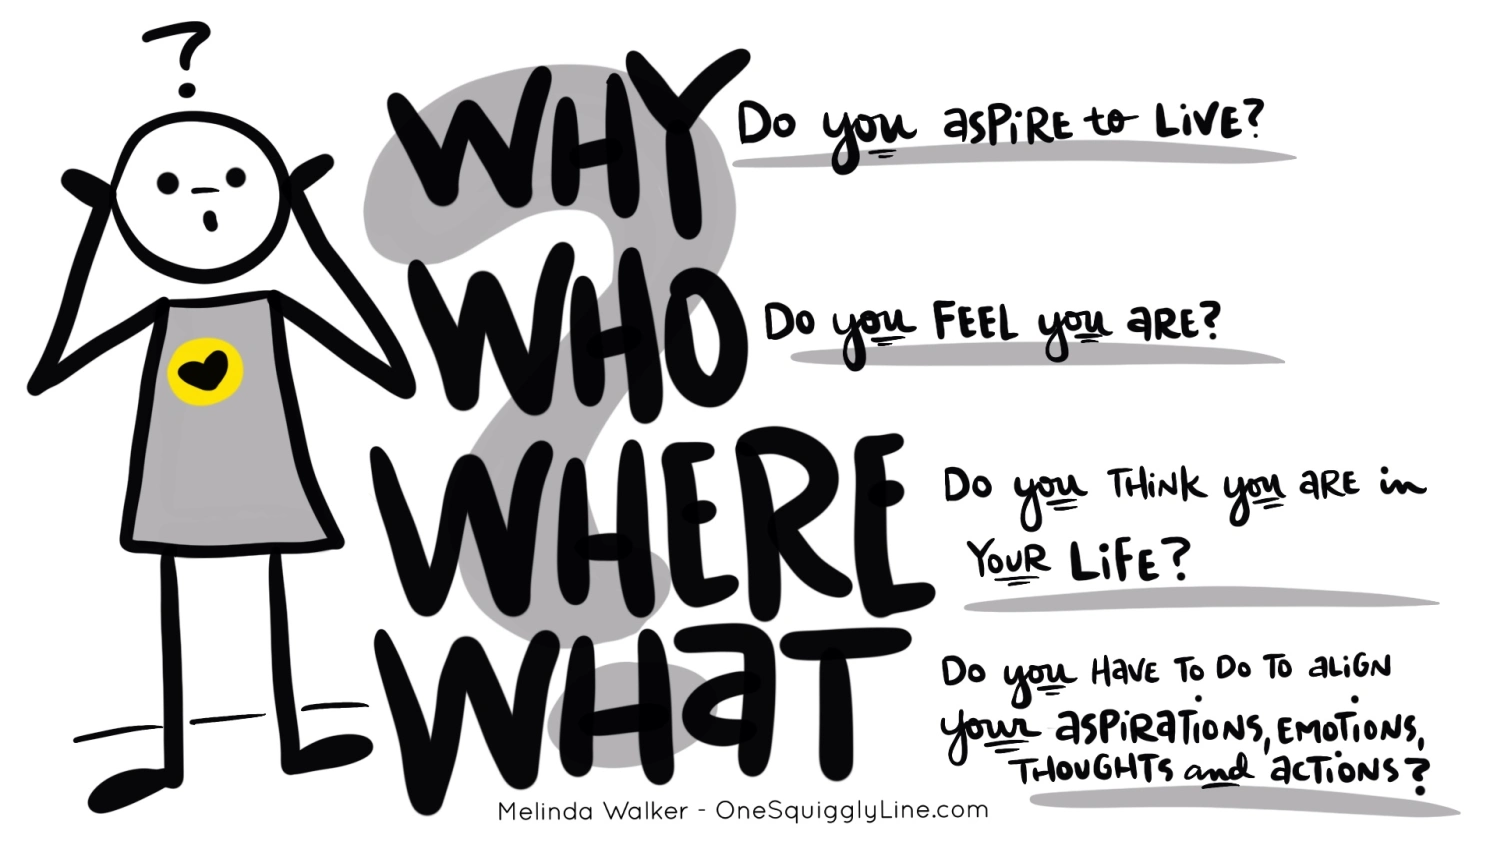 ?
WHY Do you aspiRE to LiVE?
WHO Do you FEEL you aRE?
WHERE Do you THiNK you aRE in
YouR LiFE?
WHaT Do you HAVE To Do To aLiGN
your aspiRaTioNs, EMoTioNs,
THouGHTs and acTioNs?
Melinda Walker - OneSquigglyLine.com